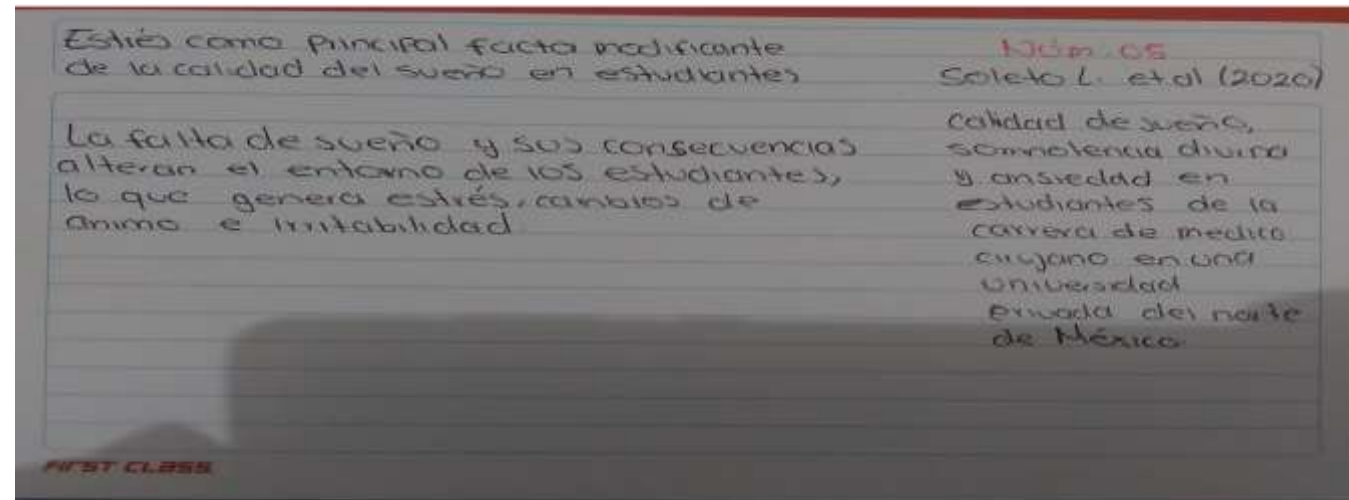 Estrés como Principal facto modificante
de la calidad del sueño en estudiantes
Núm. 05
Soleto L. et al (2020)
La falta de sueño y sus consecuencias
alteran el entorno de los estudiantes,
lo que genera estrés, cambios de
animo e irritabilidad
calidad de sueño,
somnolencia diurna
y ansiedad en
estudiantes de la
carrera de medico
cirujano en una
universidad
privada del norte
de México.
FIRST CLASS